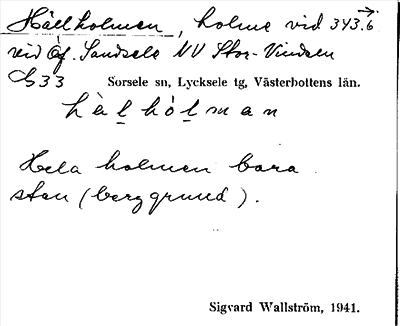 Hällholmen, holme vid 343.6
vid Öf. Sandsele NV Stor-Vindeln
S33 Sorsele sn, Lycksele tg, Västerbottens län.
hälhòlman
Hela holmen bara
sten (berggrund).
Sigvard Wallström, 1941.